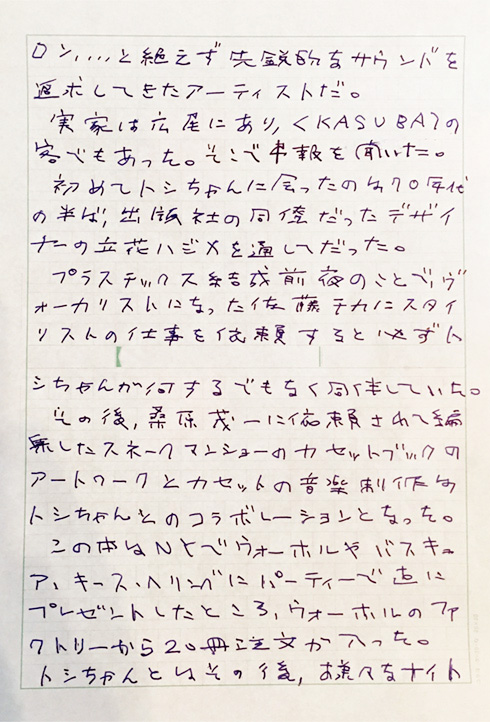 ロン,...と絶えず先鋭的なサウンドを
追求してきたアーティストだ。
実家は広尾にあり,〈KASUBA〉の
客でもあった。そこで訃報を聞いた。
初めてトシちゃんに会ったのは70年代
の半ば,出版社の同僚だったデザイ
ナーの立花ハジメを通してだった。
プラスチックス結成前夜のことで,ヴ
ォーカリストになった佐藤チカにスタイ
リストの仕事を依頼すると必ずト
シちゃんが何するでもなく同伴していた。
その後,桑原茂一に依頼されて編
集したスネークマンショーのカセットブックの
アートワークとカセットの音楽制作は
トシちゃんとのコラボレーションとなった。
この本はNYでウォーホルやバスキ
ア,キース・ヘリングにパーティーで直に
プレゼントしたところ,ウォーホルのファ
クトリーから20冊注文が入った。
トシちゃんとはその後,様々なナイト